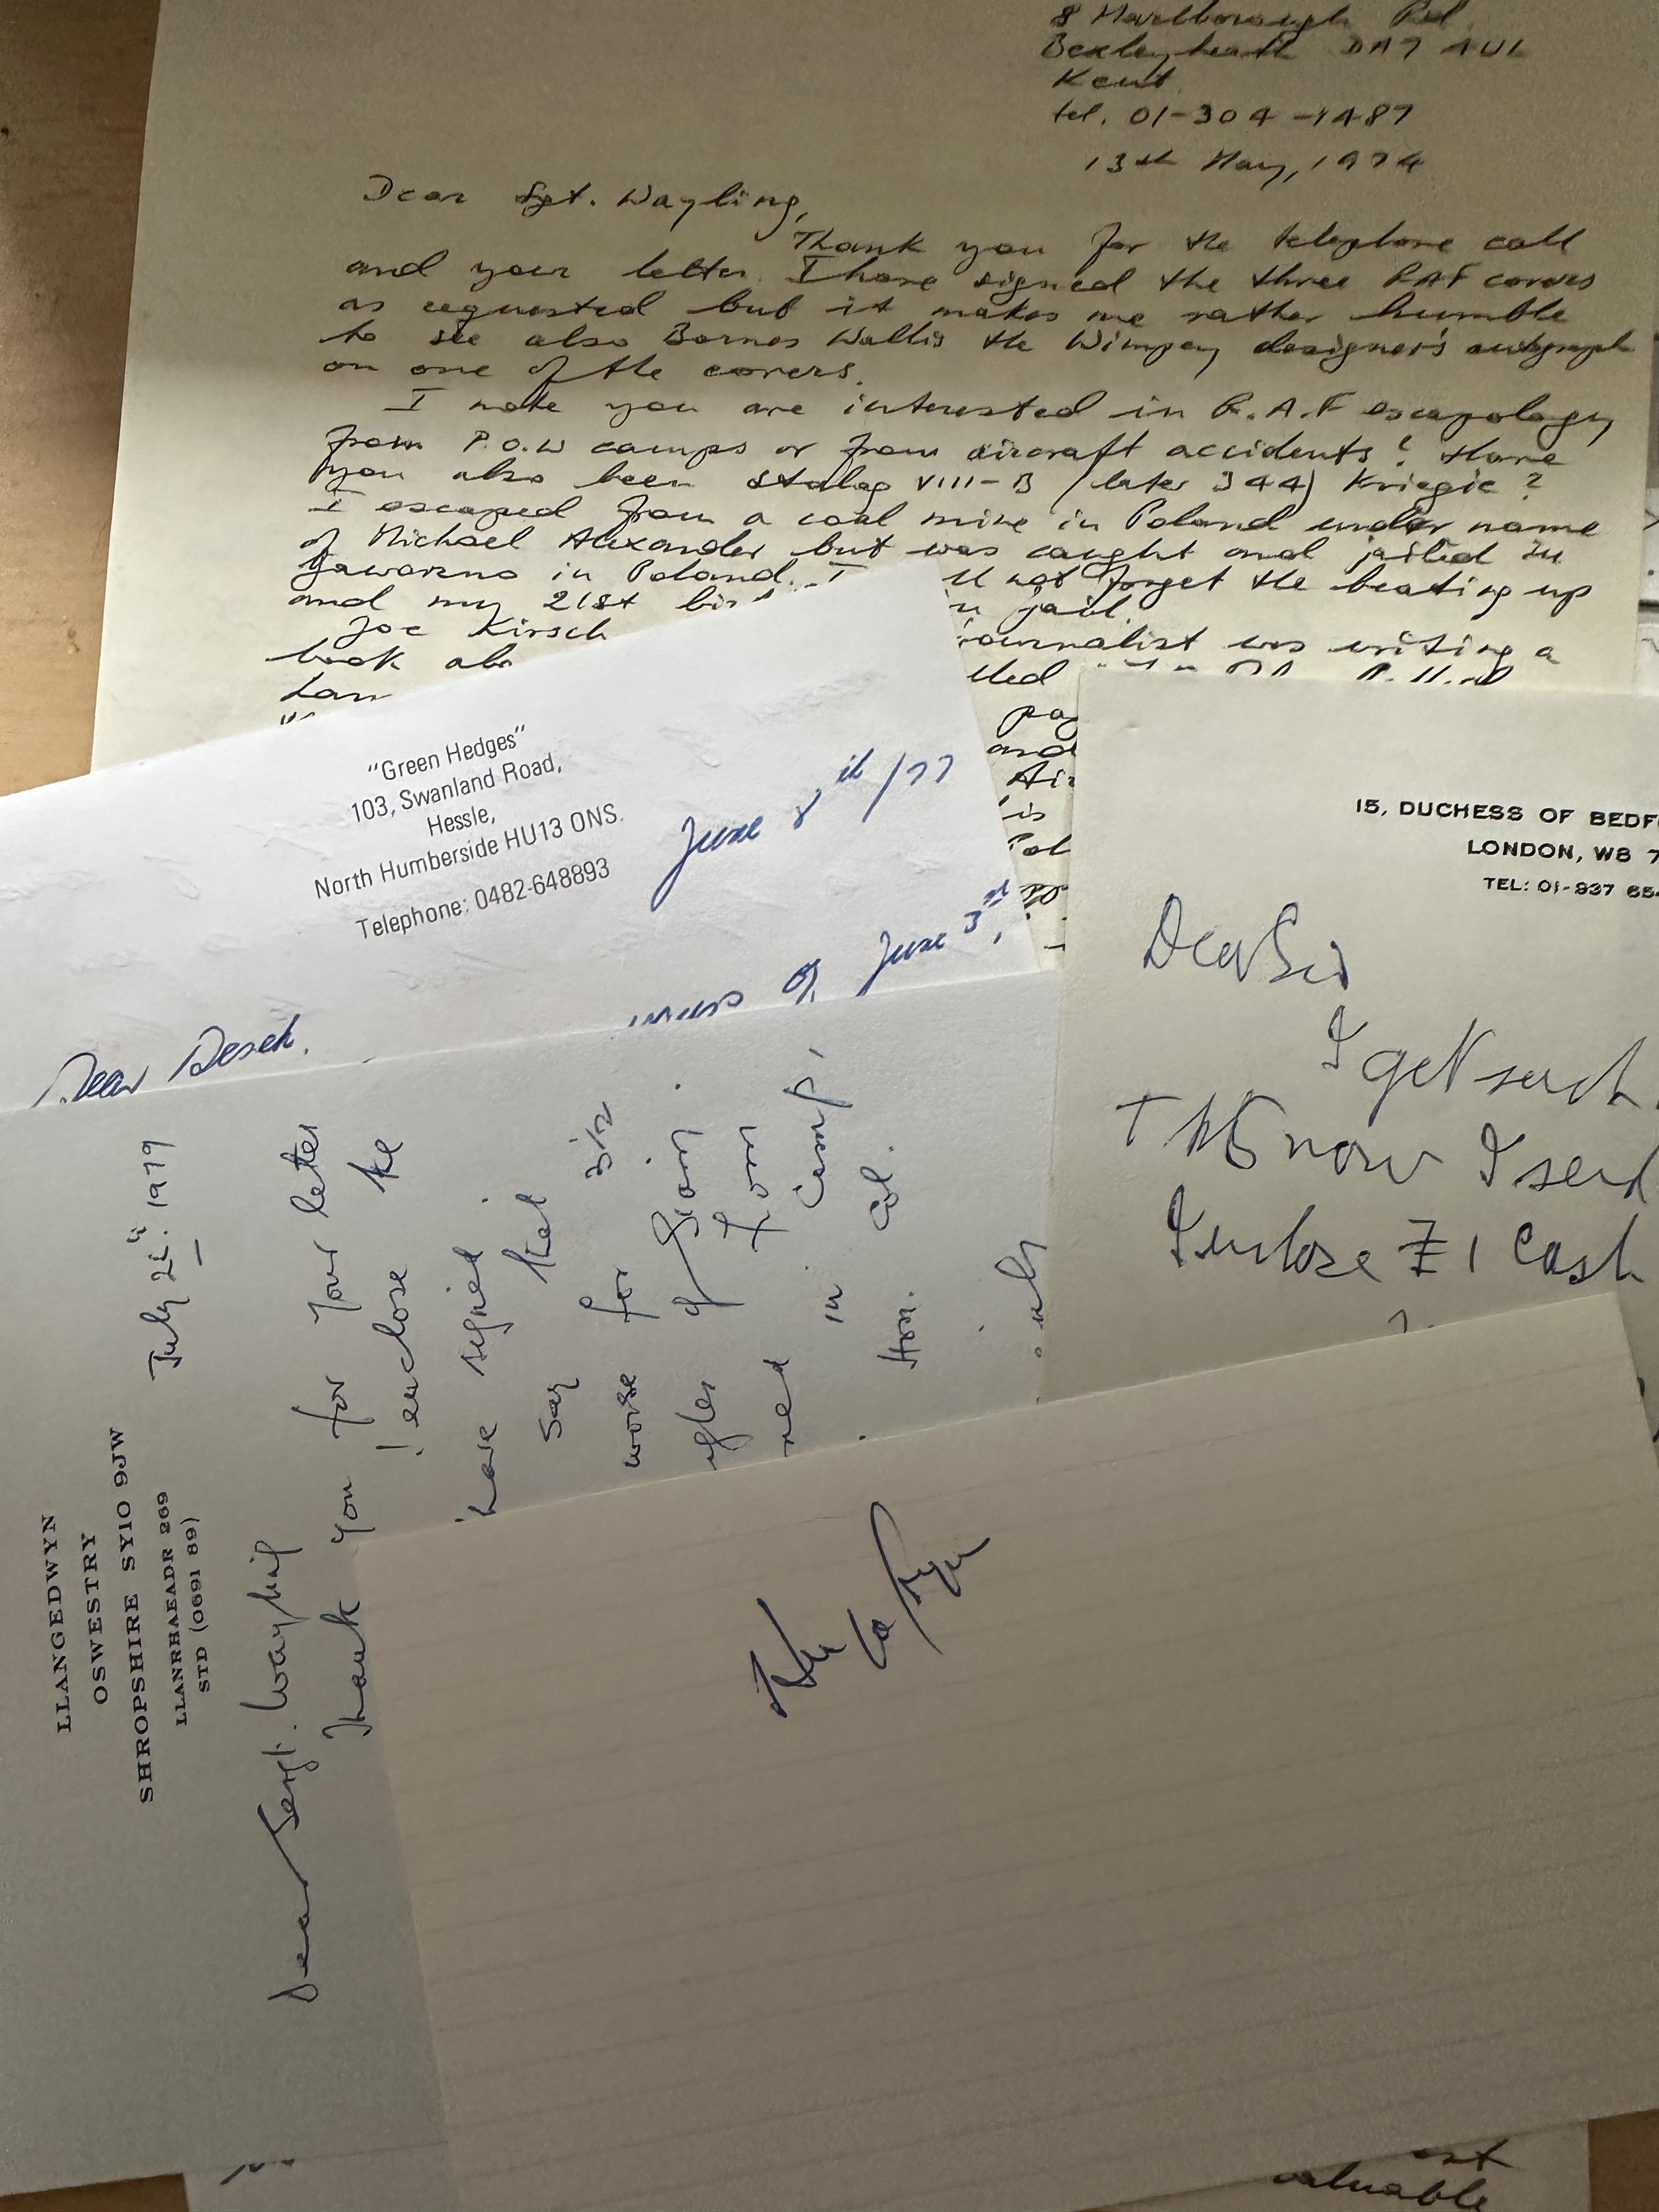 8 Marlborough Rd
Bexleyheath DA7
Kent
tel. 01-304-1487
13th May, 1974
Dear Sgt. Wayling,
Thank you for the telephone call
and your letter. I have signed the three RAF covers
as requested but it makes me rather humble
to see also Barnes Wallis the Wimpey designer's autograph
on one of the covers.
I note you are interested in R.A.F escapology,
from P.O.W camps or from aircraft accidents? Have
you also been Stalag VIII-B (later 344) Kriegie?
I escaped from a coal mine in Poland under name
of Michael Alexander but was caught and jailed in
Jaworzno in Poland. I not forget the beating up
and my 21st jail.
Joe Kirsch journalist was writing a
book
"Green Hedges"
103, Swanland Road,
Hessle,
North Humberside HU13 0NS.
Telephone: 0482-648893
June 8th/77
of June 3rd,
Dear Derek.
15, DUCHESS OF BEDF
LONDON, W8 7
TEL: 01-937 65
Dear Sir
I get such
now I send
I enclose £1 Cash
LLANGEDWYN
OSWESTRY
SHROPSHIRE SY10 9JW
LLANRHAEADR 269
STD (0691 89)
July 1979
Dear Sergt. Wayling
Thank you for your letter
I enclose the
have signed
say that
worse for 3½
of
in Camp,
Hon. Col.
valuable